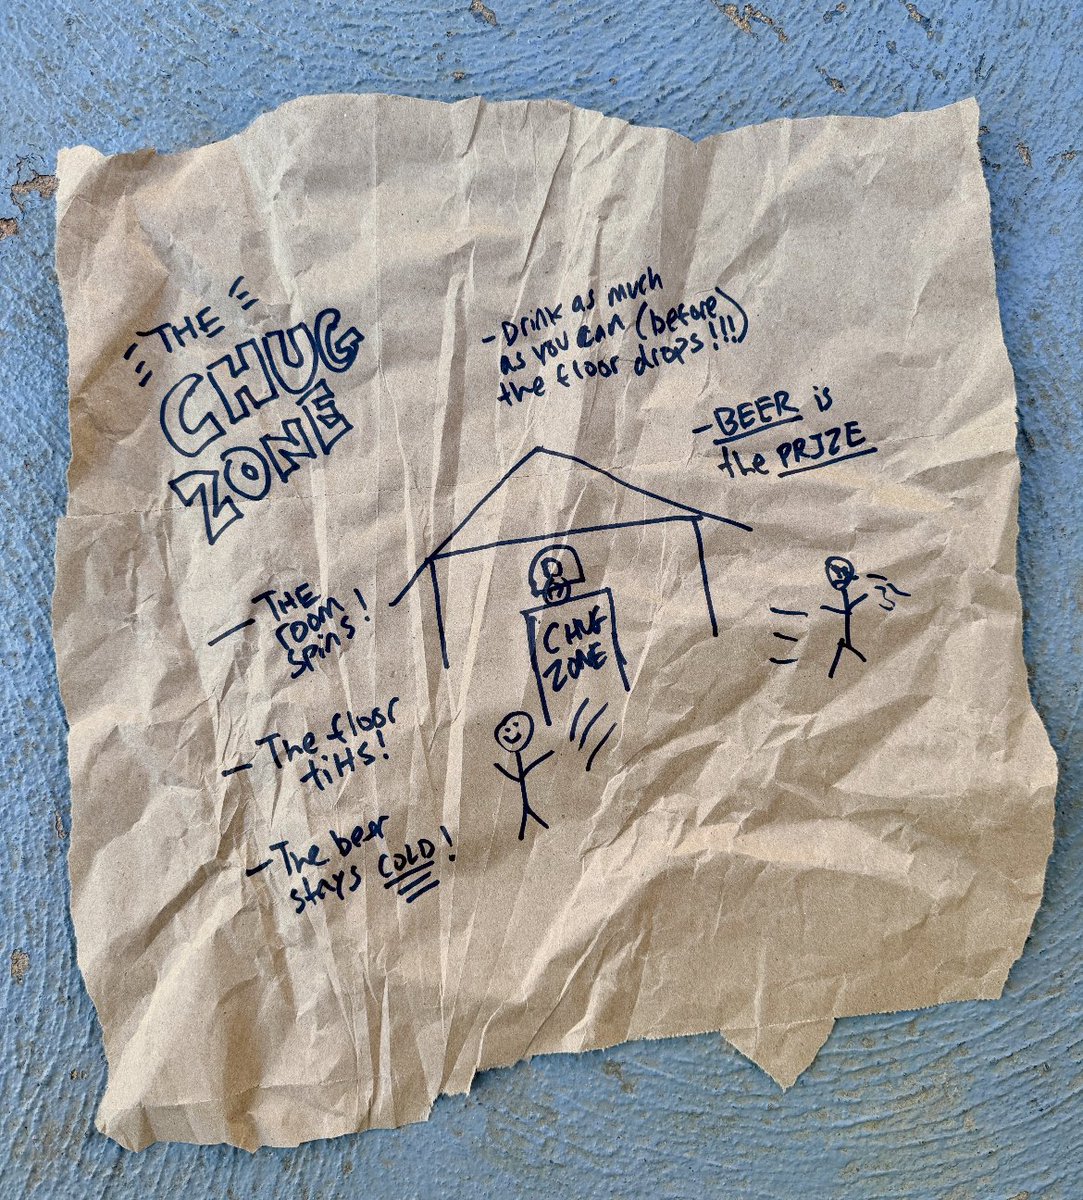 THE
CHUG
ZONE
- Drink as much
as you can (before
the floor drops!!!)
- BEER is
the PRIZE
- THE
room
spins!
- The floor
tilts!
- The beer
stays COLD!
CHUG
ZONE